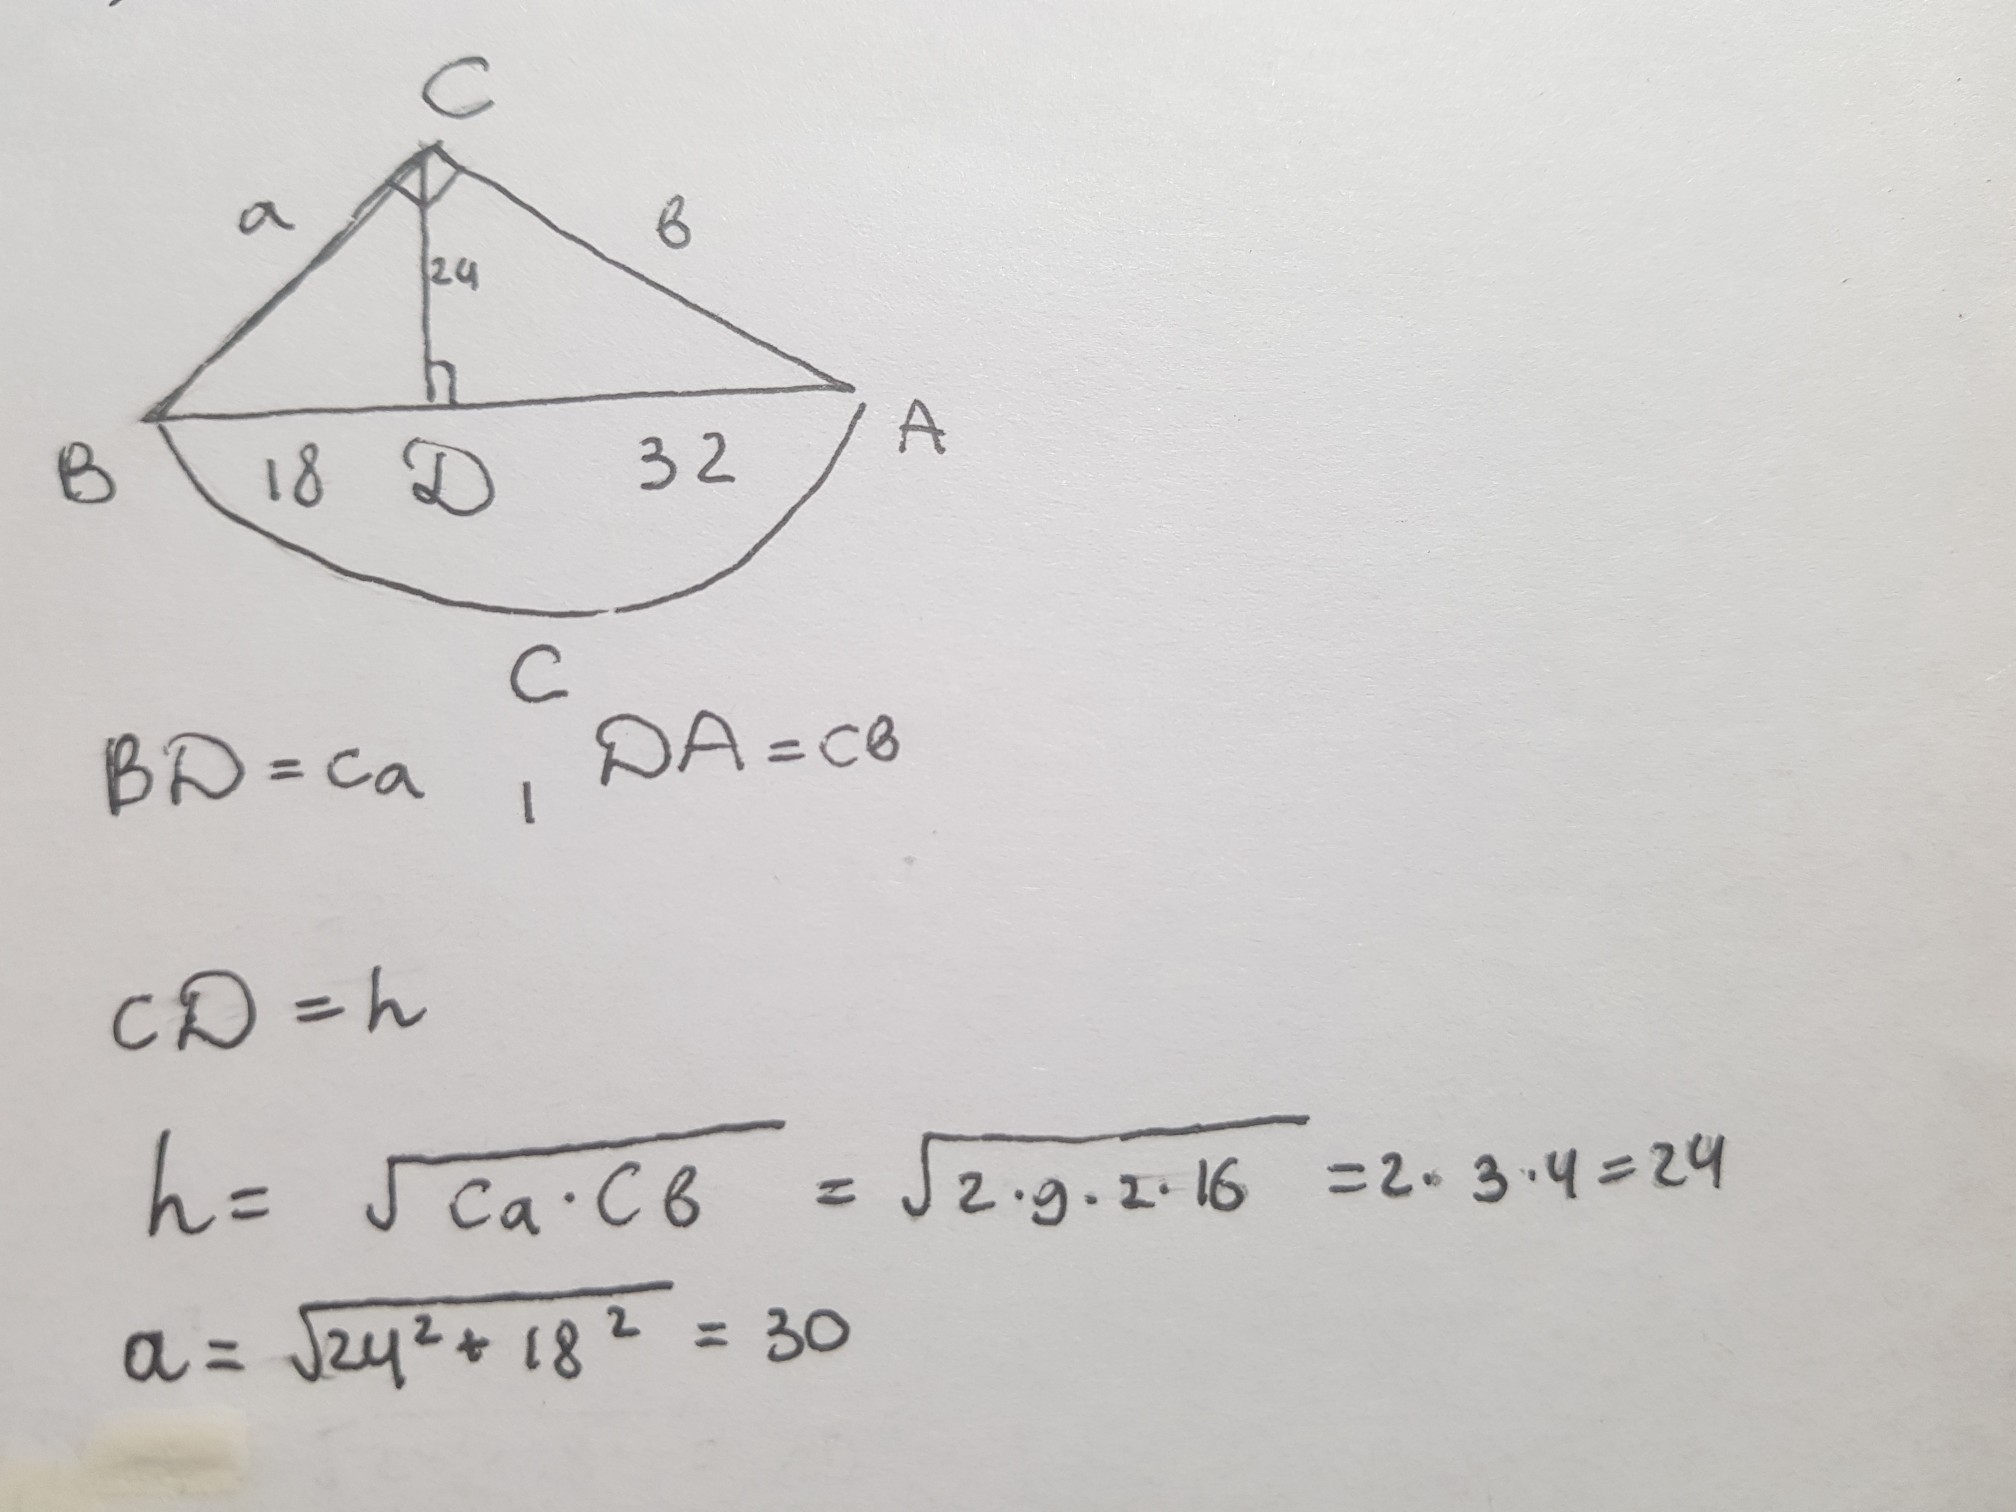 C
a в
24
B 18 D 32 A
C
BD = ca , DA = cв
CD = h
h = √ca·cв = √2·9·2·16 = 2·3·4 = 24
a = √24² + 18² = 30